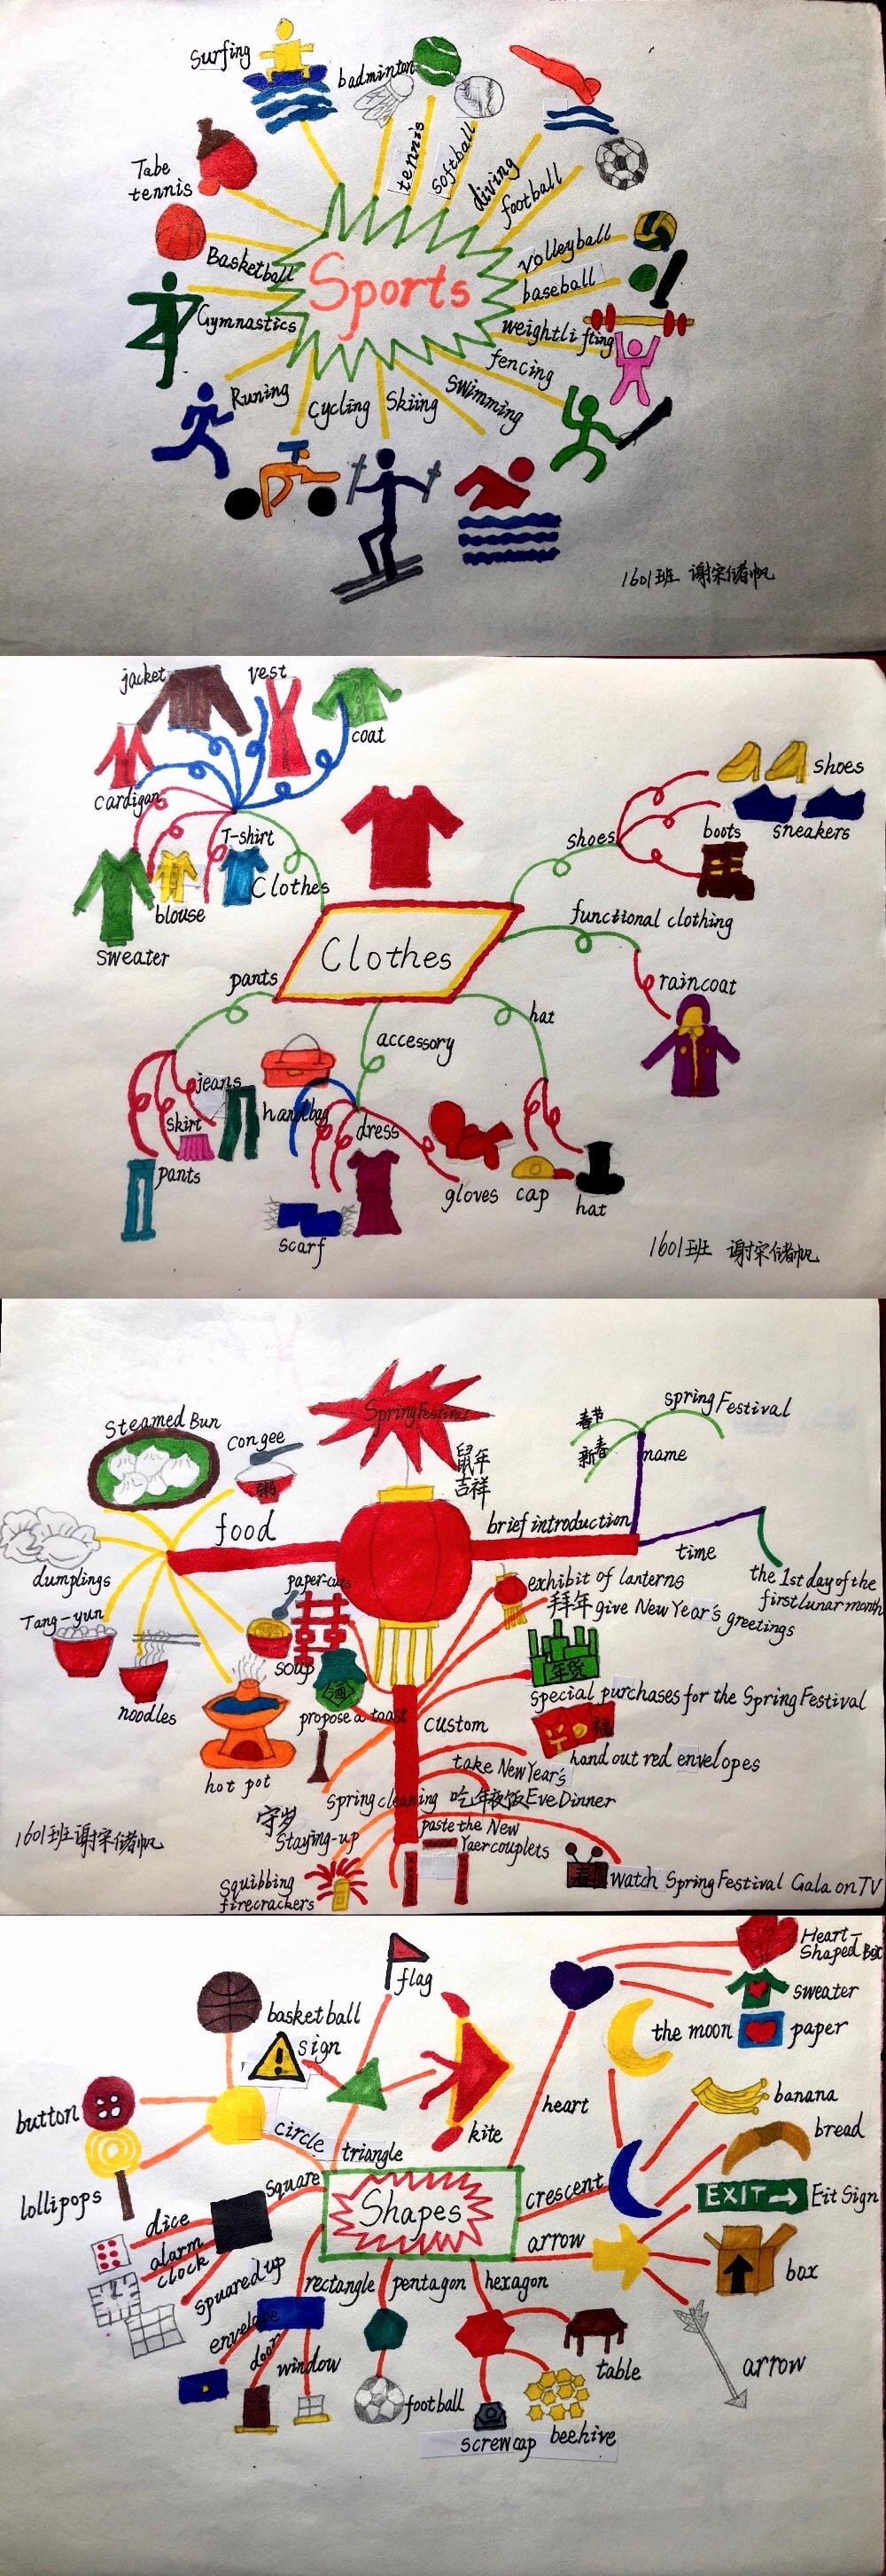 Surfing
badminton
tennis
softball
diving
football
Tabe
tennis
Basketball
Gymnastics
Sports
volleyball
baseball
weightlifting
fencing
Swimming
Skiing
Cycling
Runing
1601班 谢宋储帆
jacket
vest
coat
cardigan
T-shirt
Clothes
blouse
sweater
shoes
shoes
sneakers
boots
functional clothing
raincoat
Clothes
pants
jeans
skirt
pants
accessory
handbag
dress
scarf
gloves
hat
cap
hat
1601班 谢宋储帆
Spring Festival
鼠年
吉祥
Steamed Bun
congee
粥
food
dumplings
Tang-yun
noodles
soup
hot pot
春节
新春
spring Festival
name
brief introduction
time
the 1st day of the
first lunar month
paper-cuts
酒
propose a toast
custom
exhibit of lanterns
拜年 give New Year's
greetings
年货
special purchases for the Spring Festival
福
hand out red envelopes
take New Year's
吃年夜饭 Eve Dinner
Spring cleaning
守岁
Staying-up
paste the New
Yaer couplets
Squibbing
firecrackers
watch Spring Festival Gala on TV
1601班 谢宋储帆
flag
basketball
sign
kite
button
lollipops
circle
triangle
Square
dice
alarm
clock
spuared up
Shapes
heart
Heart-
Shaped Box
sweater
paper
the moon
banana
bread
crescent
EXIT
Eit Sign
arrow
box
arrow
rectangle
pentagon
hexagon
envelope
door
window
football
screw cap
beehive
table